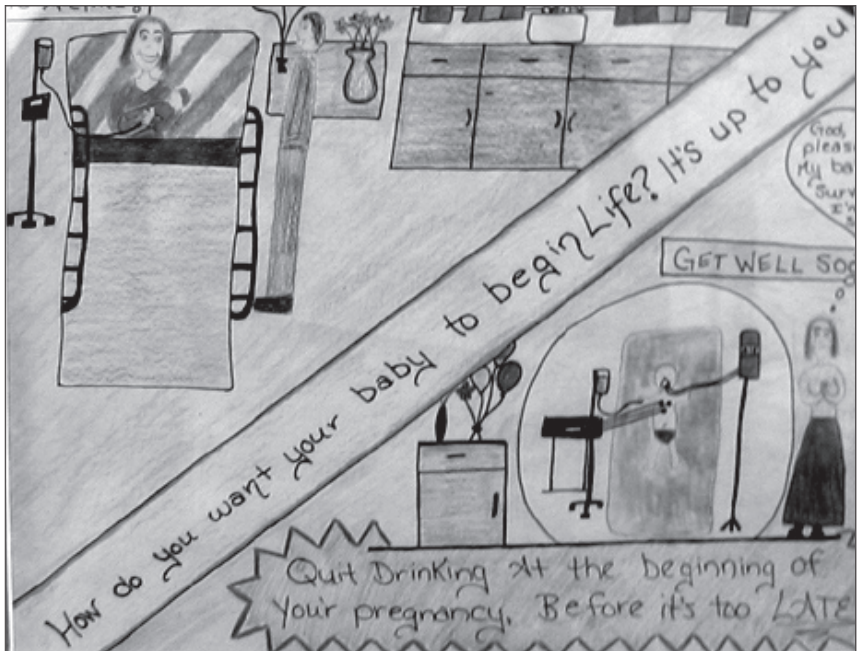 How do you want your baby to begin Life? It's up to you
God,
please
My ba
Surv
GET WELL SOO
Quit Drinking At the beginning of
Your pregnancy. Before it's too LATE